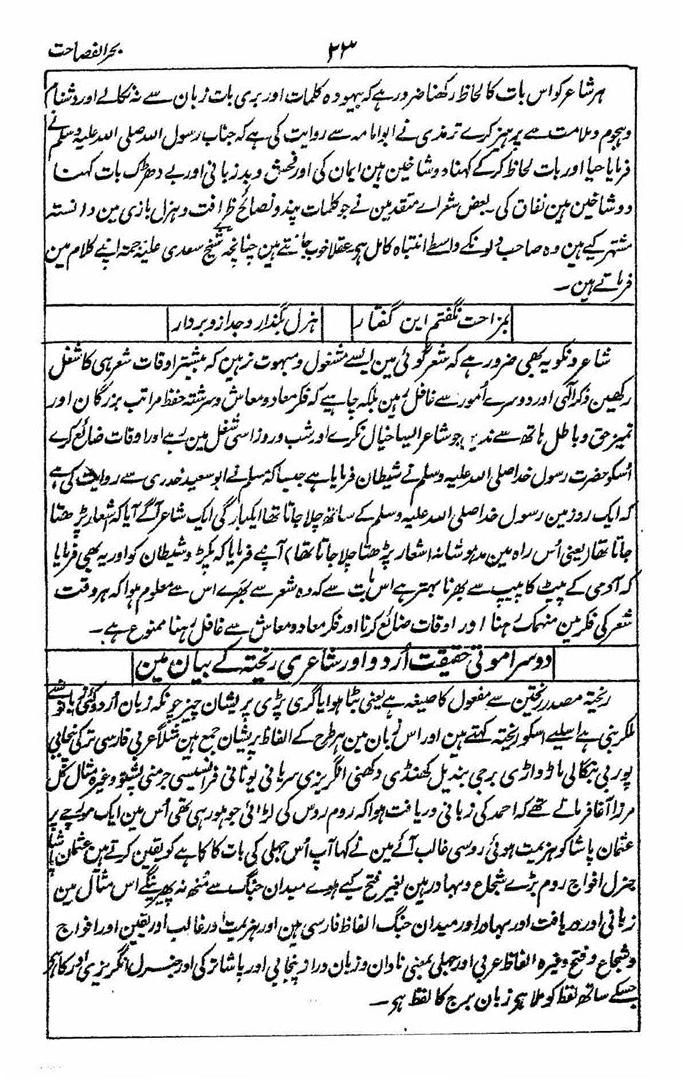 بحر الفصاحت
۲۳
ہر شاعر کو اس بات کا لحاظ رکھنا ضرور ہے کہ بیہودہ کلمات اور بری بات زبان سے نہ نکالے اور دشنام
وہجو و ملامت سے پرہیز کرے ترمذی نے ابو امامہ سے روایت کی ہے کہ جناب رسول اللہ صلی اللہ علیہ وسلم نے
فرمایا حیا اور بات لحاظ کرکے کہنا دو شاخین ہین ایمان کی اور فحش و بد زبانی اور بے دھڑک بات کہنا
دو شاخین ہین نفاق کی۔ بعض شعراے متقدمین نے جو کلمات پند و نصائح ظرافت و ہزل بازی مین دانستہ
مشتہر کیے ہین وہ صاحب لوگونکے واسطے انتباہ کامل ہی عقلا خوب جانتے ہین چنانچہ شیخ سعدی علیہ رحمہ اپنے کلام مین
فرماتے ہین۔
بمزاحت نگفتم این گفتار
ہزل بگذار و جد ازو بردار
شاعرونکو یہ بھی ضرور ہے کہ شعر گوئی مین ایسے مشغول و مبہوت نرہین کہ بیشتر اوقات شعر ہی کا شغل
رکھین ذکر الٰہی اور دوسرے اُمور سے غافل رہین بلکہ چاہیے کہ فکر معاد و معاش و سررشتہ حفظ مراتب بزرگان اور
تمیز حق و باطل ہاتھ سے ندین جو شاعر ایسا خیال نکرے اور شب و روز اسی شغل مین رہے اور اوقات ضائع کرے
اُسکو حضرت رسول خدا صلی اللہ علیہ وسلم نے شیطان فرمایا ہے جیسا کہ مسلم نے ابو سعید خدری سے روایت کی ہے
کہ ایک روز مین رسول خدا صلی اللہ علیہ وسلم کے ساتھ چلا جاتا تھا ایکبارگی ایک شاعر آگے آیا کہ شعار پڑھتا
جاتا تھا (یعنی اُس راہ مین مدہوشانہ اشعار پڑھتا چلا جاتا تھا) آپنے فرمایا کہ پکڑو شیطان کو اور یہ بھی فرمایا
کہ آدمی کے پیٹ کا پیپ سے بھرنا بہتر ہے اس بات سے کہ وہ شعر سے بھرے اس سے معلوم ہوا کہ ہر وقت
شعر کی فکر مین منہمک رہنا اور اوقات ضائع کرنا اور فکر معاد و معاش سے غافل رہنا ممنوع ہے۔
دوسرا موتی حقیقت اُردو اور شاعری ریختہ کے بیان مین
ریختہ مصدر ریختن سے مفعول کا صیغہ ہے یعنی بٹا ہوا یا گری پڑی پریشان چیز چونکہ زبان اُردو کئی زبانونسے
ملکر بنی ہے اسلیے اسکو ریختہ کہتے ہین اور اس زبان مین ہر طرح کے الفاظ پریشان جمع ہین مثلاً عربی فارسی ترکی پنجابی
پوربی بنگالی ماڑواڑی برجی بندیل کھنڈی دکھنی انگریزی سریانی یونانی فرانسیسی جرمنی پشتو وغیرہ مثال
مرزا آغا فرماتے تھے کہ احمد کی زبانی دریافت ہوا کہ روم روس کی لڑائی جو ہو رہی تھی اُس مین ایک مورچے پر
عثمان پاشا کو ہزیمت ہوئی روسی غالب آئے مین نے کہا آپ اُس جہلی کی بات کا کاہے کو یقین کرتے ہین عثمان پاشا
جنرل افواج روم بڑے شجاع و بہادر ہین بغیر فتح کیے ہوے میدان جنگ سے منھ نہ پھیرینگے اس مثال مین
زبانی اور دریافت اور بہادر اور میدان جنگ الفاظ فارسی ہین اور ہزیمت اور غالب اور یقین اور افواج
و شجاع و فتح وغیرہ الفاظ عربی اور جہلی بمعنی نادان و زبان دراز پنجابی اور پاشا ترکی اور جنرل انگریزی اور کاہے
جسکے ساتھ لفظ کو ملا ہی زبان برج کا لفظ ہی۔